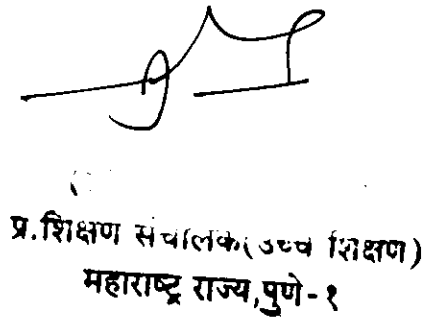 प्र.शिक्षण संचालक(उच्च शिक्षण)
महाराष्ट्र राज्य,पुणे-१